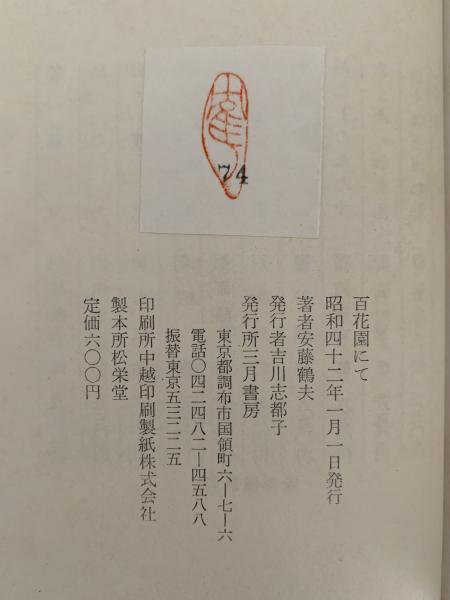 74
百花園にて
昭和四十二年一月一日発行
著者安藤鶴夫
発行者吉川志都子
発行所三月書房
東京都調布市国領町六ー七ー六
電話〇四二四八二ー四五八八
振替東京五三二二五
印刷所中越印刷製紙株式会社
製本所松栄堂
定価六〇〇円